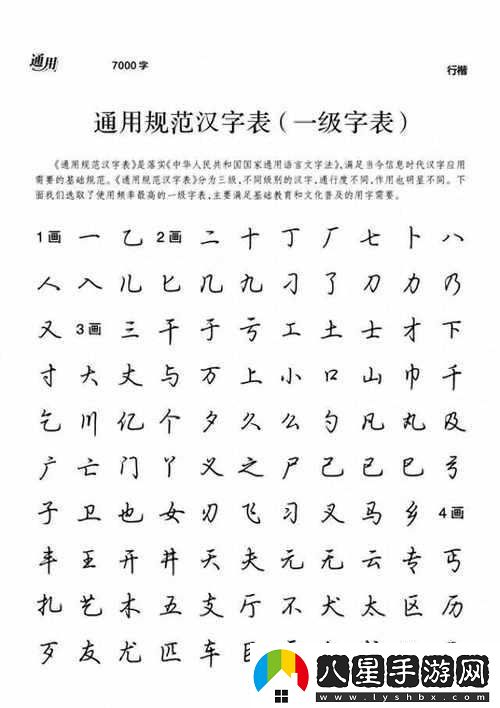 通用
7000 字
行楷
通用规范汉字表（一级字表）
《通用规范汉字表》是落实《中华人民共和国国家通用语言文字法》，满足当今信息时代汉字应用
需要的基础规范。《通用规范汉字表》分为三级，不同级别的汉字，通行度不同，作用也明显不同。下
面我们选取了使用频率最高的一级字表，主要满足基础教育和文化普及的用字需要。
1画 一 乙 2画 二 十 丁 厂 七 卜 八
人 入 儿 匕 几 九 刁 了 刀 力 乃
又 3画 三 干 于 亏 工 土 士 才 下
寸 大 丈 与 万 上 小 口 山 巾 千
乞 川 亿 个 夕 久 么 勺 凡 丸 及
广 亡 门 丫 义 之 尸 己 已 巳 弓
子 卫 也 女 刃 飞 习 叉 马 乡 4画
丰 王 开 井 天 夫 元 无 云 专 丐
扎 艺 木 五 支 厅 不 犬 太 区 历
歹 友 尤 匹 车
八星手游网
www.lyshbx.com